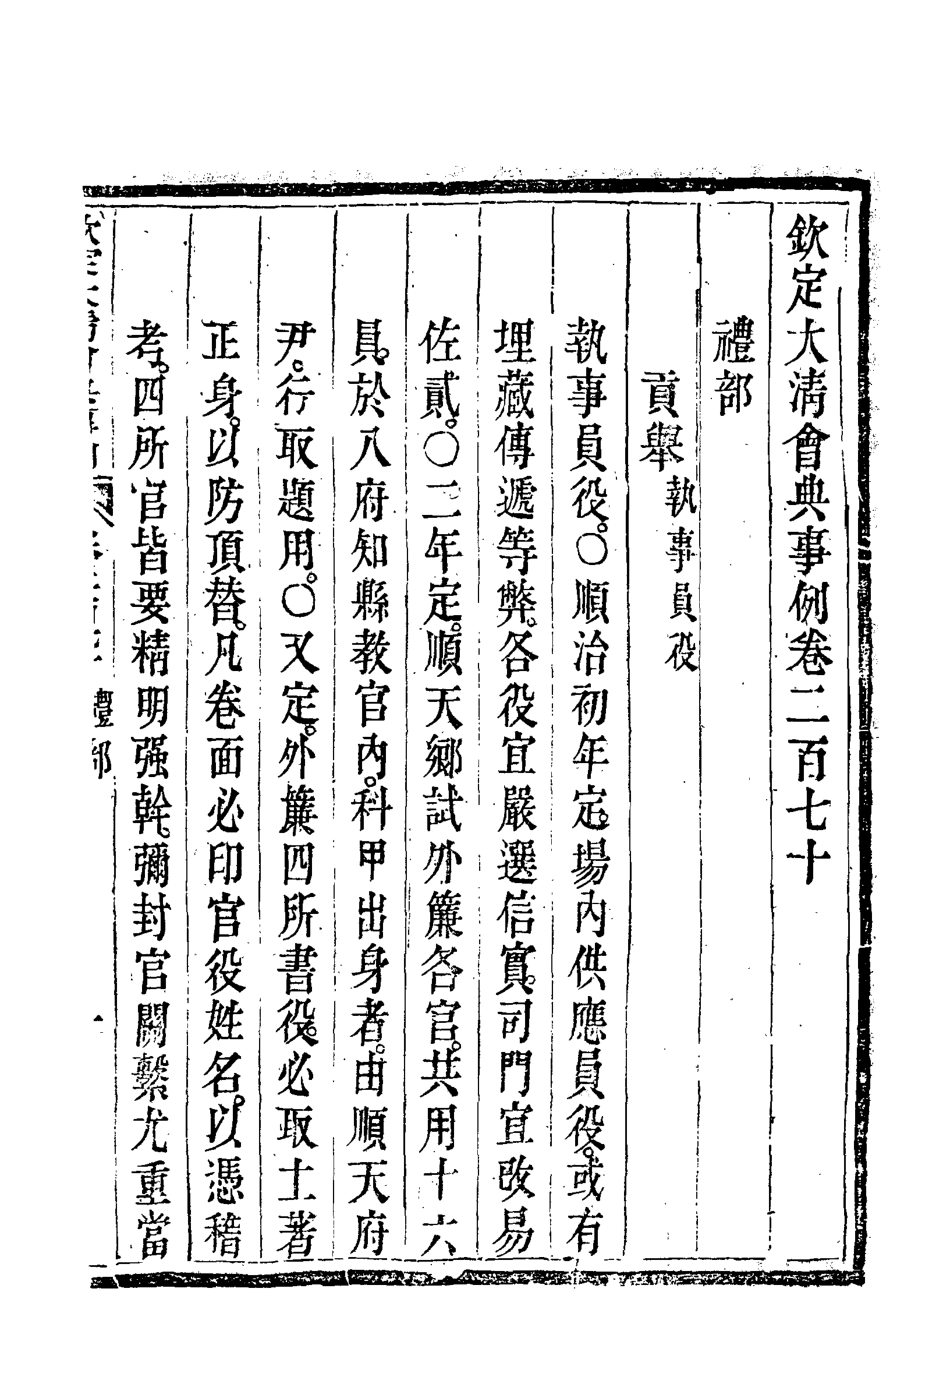 欽定大清會典事例卷二百七十
禮部
貢舉執事員役
執事員役。○順治初年定。場內供應員役。或有
埋藏傳遞等弊。各役宜嚴選信實。司門宜改易
佐貳。○二年定。順天鄉試外簾各官。共用十六
員。於八府知縣教官內。科甲出身者。由順天府
尹。行取題用。○又定。外簾四所書役。必取土著
正身。以防頂替。凡卷面必印官役姓名。以憑稽
考。四所官皆要精明强幹。彌封官關繫尤重當
禮部
一